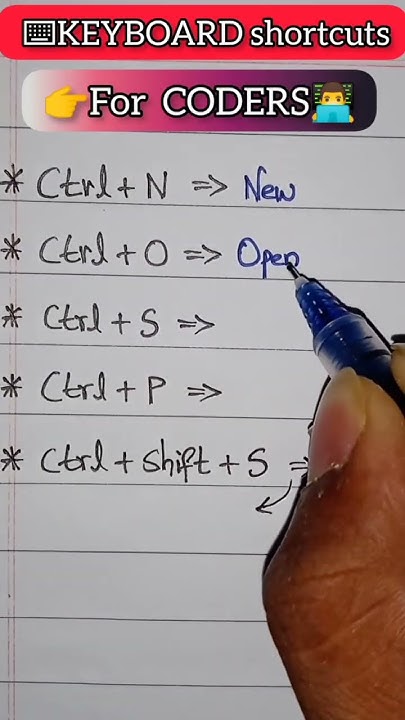 ⌨KEYBOARD shortcuts
👉For CODERS👨‍💻
* Ctrl + N => New
* Ctrl + O => Open
* Ctrl + S =>
* Ctrl + P =>
* Ctrl + Shift + S =>